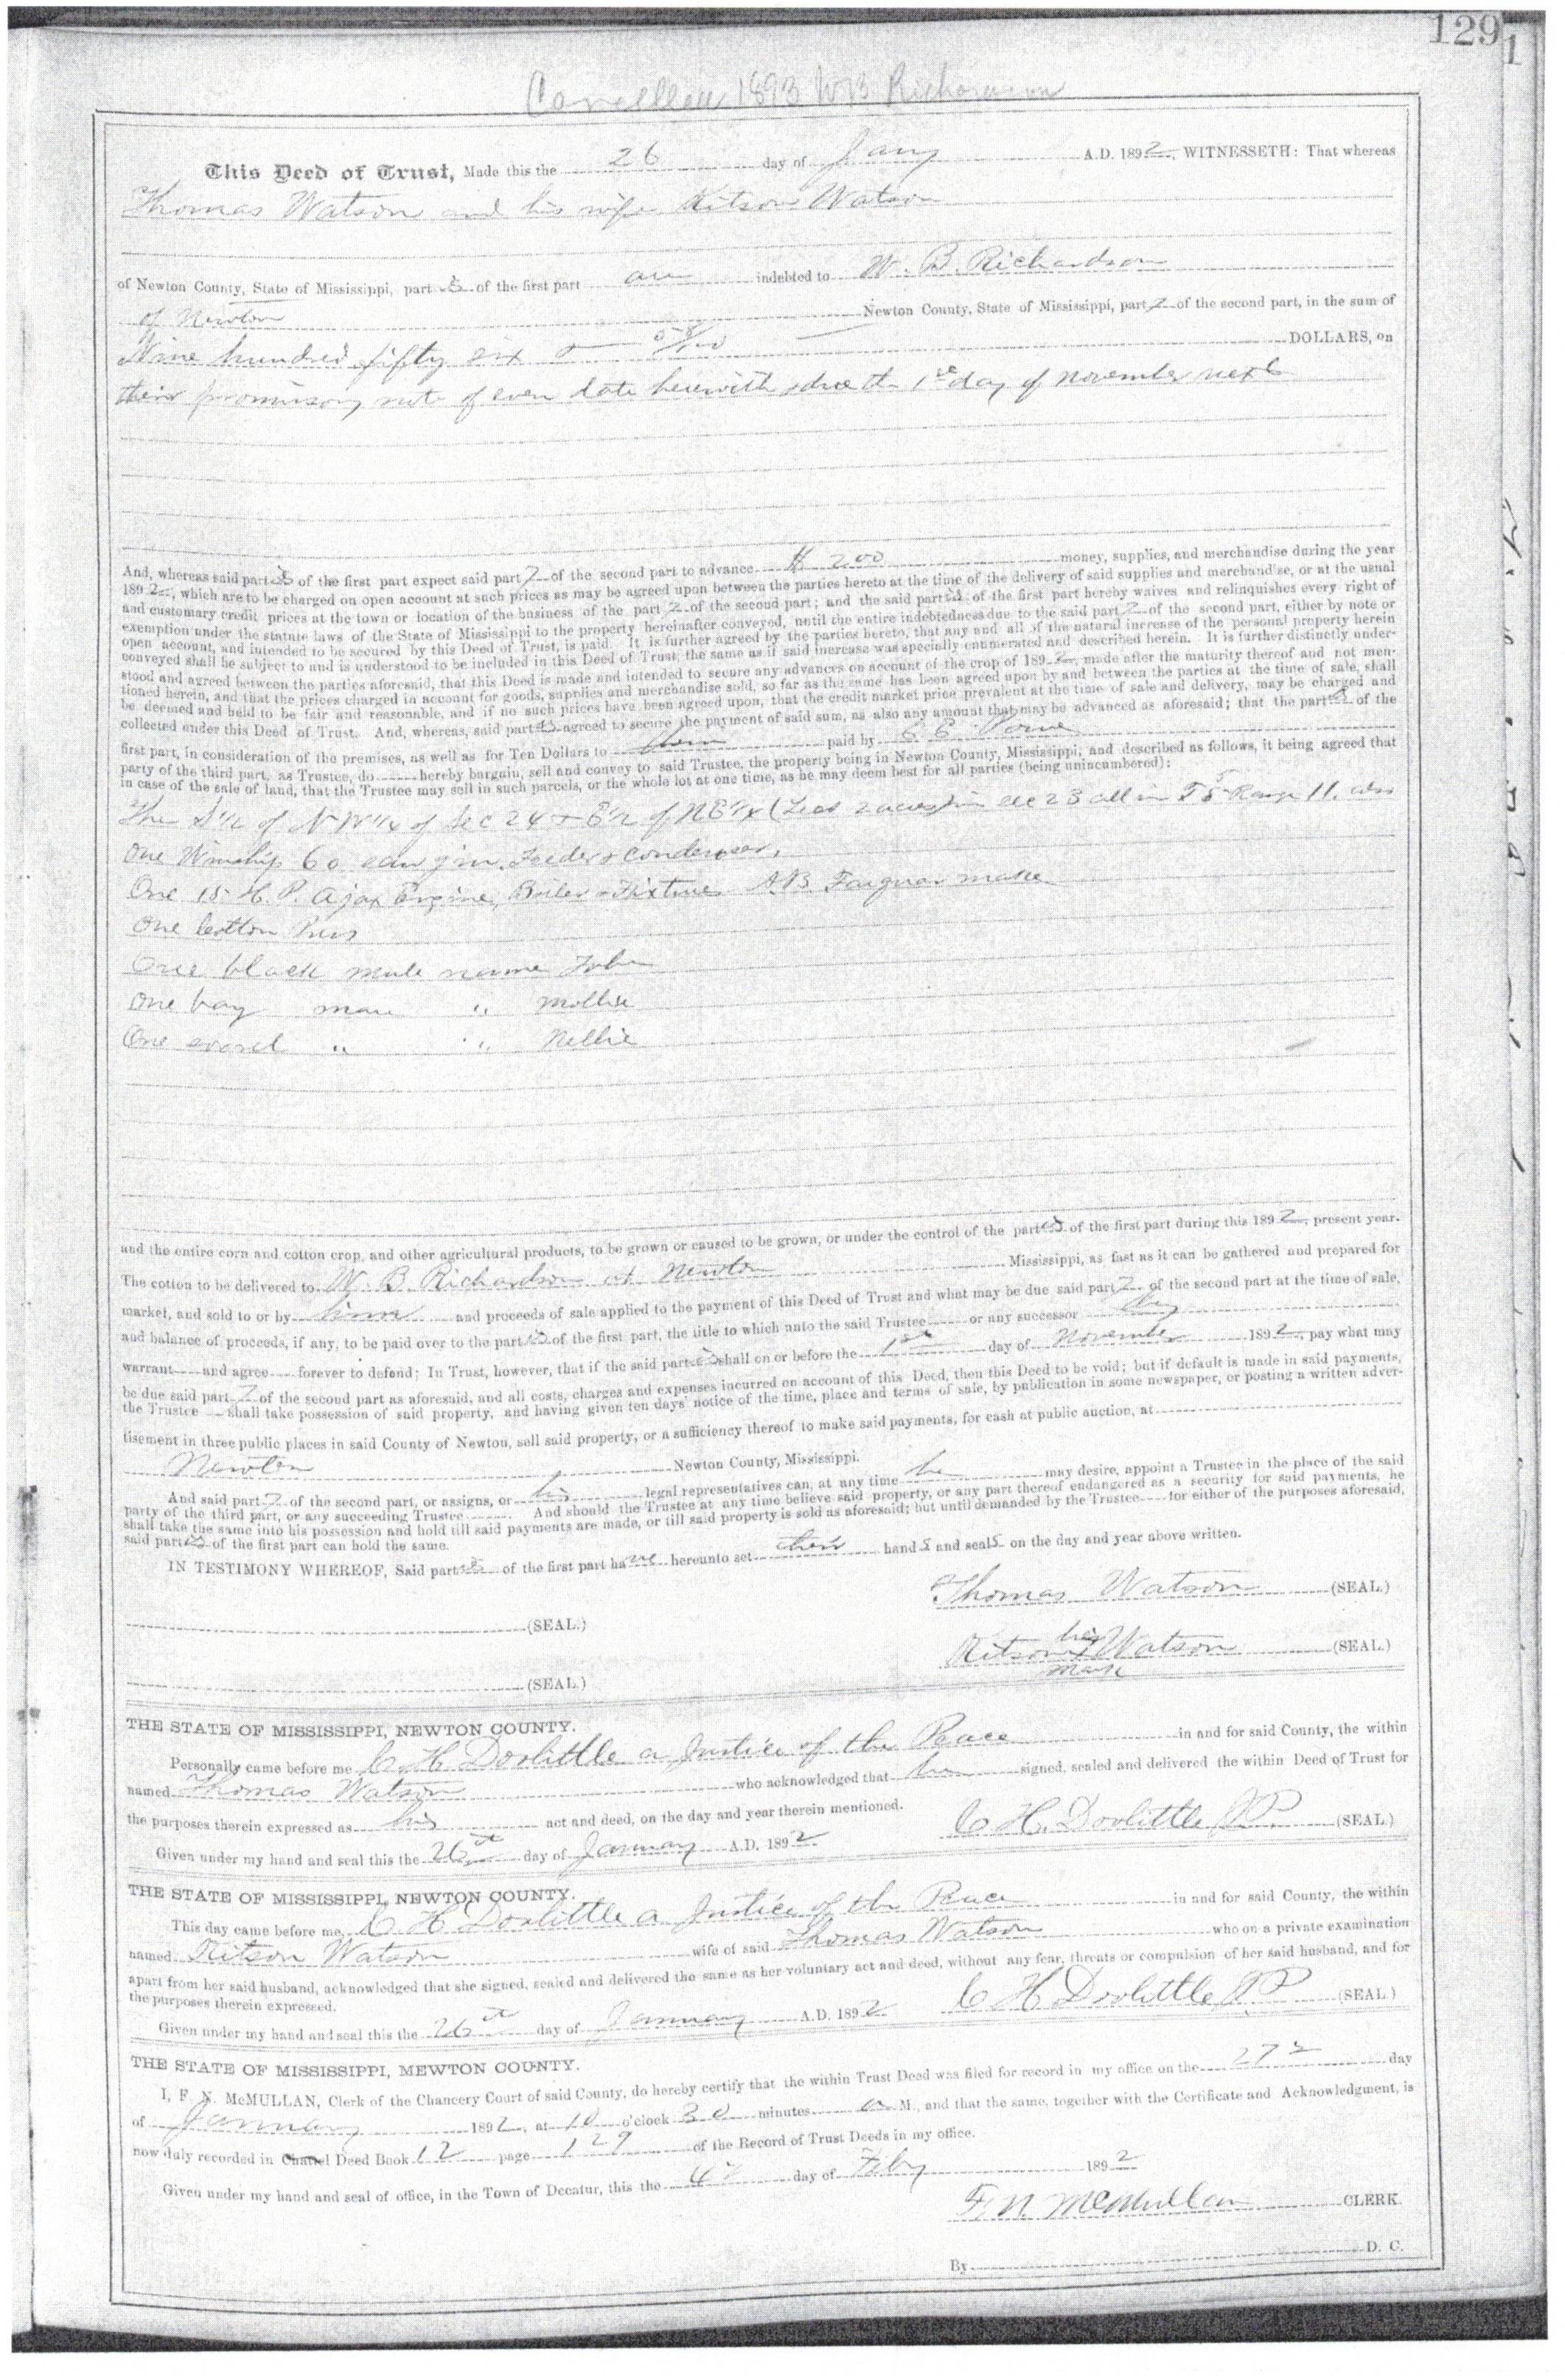 129
1
Cancelled 1893 W B Richardson
This Deed of Trust, Made this the 26 day of Jany A.D. 1892, WITNESSETH: That whereas
Thomas Watson and his wife Kitson Watson
of Newton County, State of Mississippi, parties of the first part are indebted to W. B. Richardson
of Newton Newton County, State of Mississippi, party of the second part, in the sum of
Nine hundred fifty six & 58/100 DOLLARS, on
their promissory note of even date herewith, due the 1st day of November next
And, whereas said parties of the first part expect said party of the second part to advance $ 200 money, supplies, and merchandise during the year
1892, which are to be charged on open account at such prices as may be agreed upon between the parties hereto at the time of the delivery of said supplies and merchandise, or at the usual
and customary credit prices at the town or location of the business of the party of the second part; and the said parties of the first part hereby waives and relinquishes every right of
exemption under the statute laws of the State of Mississippi to the property hereinafter conveyed, until the entire indebtedness due to the said party of the second part, either by note or
open account, and intended to be secured by this Deed of Trust, is paid. It is further agreed by the parties hereto, that any and all of the natural increase of the personal property herein
conveyed shall be subject to and is understood to be included in this Deed of Trust, the same as if said increase was specially enumerated and described herein. It is further distinctly under-
stood and agreed between the parties aforesaid, that this Deed is made and intended to secure any advances on account of the crop of 1892, made after the maturity thereof and not men-
tioned herein, and that the prices charged in account for goods, supplies and merchandise sold, so far as the same has been agreed upon by and between the parties at the time of sale, shall
be deemed and held to be fair and reasonable, and if no such prices have been agreed upon, that the credit market price prevalent at the time of sale and delivery, may be charged and
collected under this Deed of Trust. And, whereas, said parties agreed to secure the payment of said sum, as also any amount that may be advanced as aforesaid; that the parties of the
first part, in consideration of the premises, as well as for Ten Dollars to them paid by
party of the third part, as Trustee, do hereby bargain, sell and convey to said Trustee, the property being in Newton County, Mississippi, and described as follows, it being agreed that
in case of the sale of land, that the Trustee may sell in such parcels, or the whole lot at one time, as he may deem best for all parties (being unincumbered):
The S½ of NW¼ of Sec 24 & E½ of NE¼ (Less 2 acres) in sec 23 all in T 5 Range 11. also
One Winship 60 saw gin, Feeder & condenser,
One 15 H. P. Ajax Engine, Boiler & Fixtures A.B. Farquar make
One Cotton Press
One black mule name John
One bay mare " Mollie
One sorrel " " Nellie
and the entire corn and cotton crop, and other agricultural products, to be grown or caused to be grown, or under the control of the parties of the first part during this 1892, present year.
The cotton to be delivered to W. B. Richardson at Newton Mississippi, as fast as it can be gathered and prepared for
market, and sold to or by him and proceeds of sale applied to the payment of this Deed of Trust and what may be due said party of the second part at the time of sale,
and balance of proceeds, if any, to be paid over to the parties of the first part, the title to which unto the said Trustee or any successor they
warrant and agree forever to defend; In Trust, however, that if the said parties shall on or before the 1st day of November 1892, pay what may
be due said party of the second part as aforesaid, and all costs, charges and expenses incurred on account of this Deed, then this Deed to be void; but if default is made in said payments,
the Trustee shall take possession of said property, and having given ten days' notice of the time, place and terms of sale, by publication in some newspaper, or posting a written adver-
tisement in three public places in said County of Newton, sell said property, or a sufficiency thereof to make said payments, for cash at public auction, at
Newton Newton County, Mississippi.
And said party of the second part, or assigns, or his legal representatives can, at any time he may desire, appoint a Trustee in the place of the said
party of the third part, or any succeeding Trustee. And should the Trustee at any time believe said property, or any part thereof endangered as a security for said payments, he
shall take the same into his possession and hold till said payments are made, or till said property is sold as aforesaid; but until demanded by the Trustee for either of the purposes aforesaid,
said parties of the first part can hold the same.
IN TESTIMONY WHEREOF, Said parties of the first part have hereunto set their hands and seals on the day and year above written.
Thomas Watson (SEAL.)
(SEAL.)
her
Kitson X Watson (SEAL.)
mark
(SEAL.)
THE STATE OF MISSISSIPPI, NEWTON COUNTY.
Personally came before me C H Doolittle a Justice of the Peace in and for said County, the within
named Thomas Watson who acknowledged that he signed, sealed and delivered the within Deed of Trust for
the purposes therein expressed as his act and deed, on the day and year therein mentioned.
Given under my hand and seal this the 26th day of January A.D. 1892 C H. Doolittle J.P. (SEAL.)
THE STATE OF MISSISSIPPI, NEWTON COUNTY.
This day came before me, C H Doolittle a Justice of the Peace in and for said County, the within
named Kitson Watson wife of said Thomas Watson who on a private examination
apart from her said husband, acknowledged that she signed, sealed and delivered the same as her voluntary act and deed, without any fear, threats or compulsion of her said husband, and for
the purposes therein expressed.
Given under my hand and seal this the 26th day of January A.D. 1892 C H Doolittle JP (SEAL.)
THE STATE OF MISSISSIPPI, MEWTON COUNTY.
I, F. N. McMULLAN, Clerk of the Chancery Court of said County, do hereby certify that the within Trust Deed was filed for record in my office on the 27th day
of January 1892, at 10 o'clock 30 minutes a M., and that the same, together with the Certificate and Acknowledgment, is
now duly recorded in Chattel Deed Book 12 page 129 of the Record of Trust Deeds in my office.
Given under my hand and seal of office, in the Town of Decatur, this the 4th day of Feby 1892
F. N. McMullan CLERK.
By D. C.